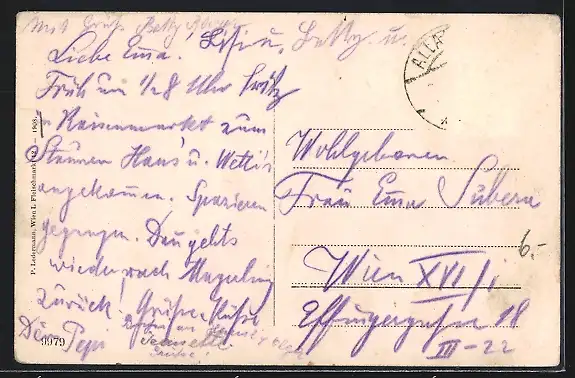 Mit Gruß Betty
Liebe Ema! Lisi u. Betty. u.
Früh um 1/28 Uhr Fritz
Kaisenmarkt zum
Staunen Hans u. Wetti's
angekommen. Spazieren
gegangen. Dan gehts
wieder nach Mayerling
zurück. Grüße Küße
Dein Pepi
Jeanette
Grüße!
9979
P. Ledermann, Wien I. Fleischmarkt 12. — 1908.
ALLA
Wohlgeboren
Frau Ema Subera
6.-
Wien XVI/1
Effingergasse 18
III - 22